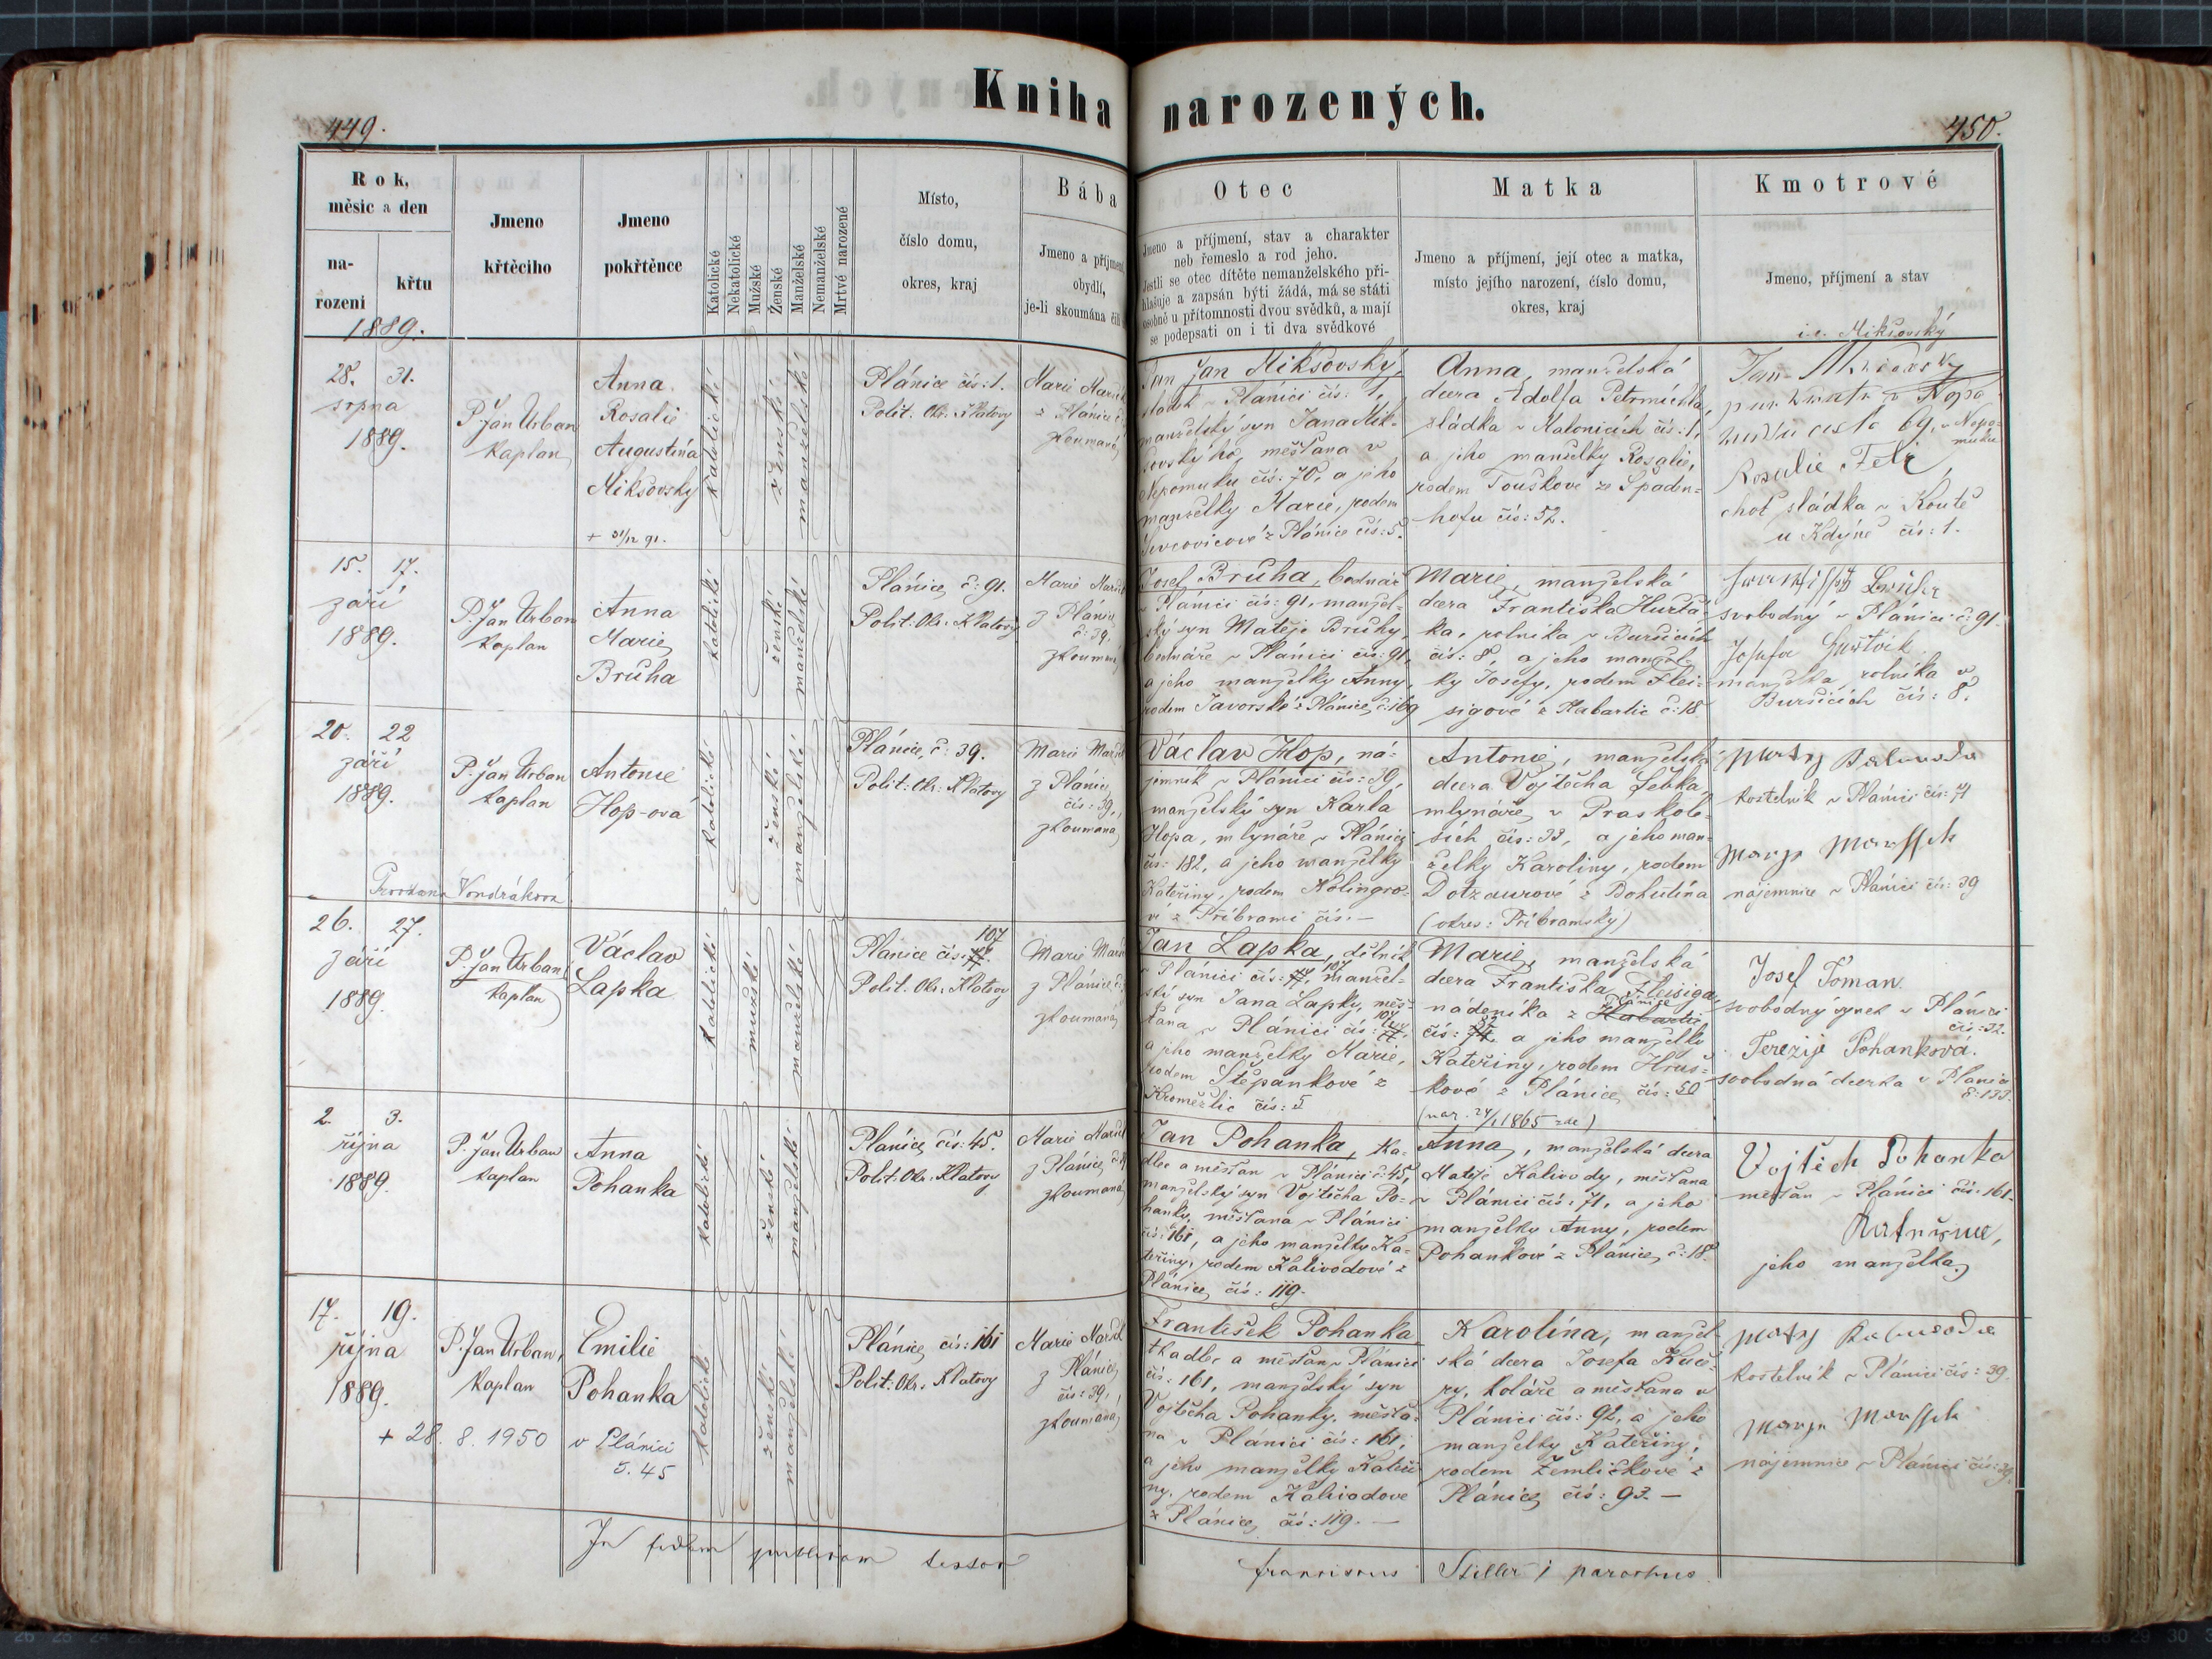 Kniha narozených.
449.
450.
Rok,
měsíc a den
na-
rození
křtu
1889.
Jmeno
křtěcího
Jmeno
pokřtěnce
Katolické
Nekatolické
Mužské
Ženské
Manželské
Nemanželské
Mrtvé narozené
Místo,
číslo domu,
okres, kraj
Bába
Jmeno a příjmení
obydlí,
je-li skoumána čili
Otec
Jmeno a příjmení, stav a charakter
neb řemeslo a rod jeho.
Jestli se otec dítěte nemanželského při-
hlašuje a zapsán býti žádá, má se státi
osobně u přítomnosti dvou svědků, a mají
se podepsati on i ti dva svědkové
Matka
Jmeno a příjmení, její otec a matka,
místo jejího narození, číslo domu,
okres, kraj
Kmotrové
Jmeno, příjmení a stav
i.e. Mikšovský
28. 31.
srpna
1889.
P. Jan Urban
Kaplan
Anna
Rosalie
Augustina
Mikšovský
+ 31/12 91.
katolické
ženské
manželské
Plánice čís: 1.
Polit. Okr. Klatovy
Marie
z Plánice
zkoumaná
Pan Jan Mikšovský,
sládek v Plánici čís: 1,
manželský syn Jana Mik-
šovského, měšťana v
Nepomuku čís: 70, a jeho
manželky Marie, rodem
z Plánice čís: 5.
Anna, manželská
dcera Adolfa Petrmichla,
sládka v Malonicích čís: 1,
a jeho manželky Rosalie,
rodem Touškové ze Spaden-
hofu čís: 52.
Jan
číslo 69, v Nepo-
muku
Rosalie Felix,
choť sládka v Koutě
u Kdýně čís: 1.
15. 17.
září
1889.
P. Jan Urban
Kaplan
Anna
Marie
Brůha
katolické
ženské
manželské
Plánice, č: 91.
Polit: Okr: Klatovy
Marie
z Plánice
č: 39.
zkoumaná
Josef Brůha, bednář
v Plánici čís: 91, manžel-
ský syn Matěje Brůhy,
bednáře v Plánici čís: 91,
a jeho manželky Anny,
rodem Javorské z Plánice, č: 169
Marie, manželská
dcera Františka Hurta-
ka, rolníka v Buršicích
čís: 8, a jeho manžel-
ky Josefy, rodem Flei-
sigové z Habartic č: 18.
svobodný v Plánici č: 91.
Josefa
manželka rolníka v
Buršicích čís: 8.
20. 22
září
1889.
P. Jan Urban
kaplan
Antonie
Hop-ová
Provdaná Vondráková
katolické
ženské
manželské
Plánice, č: 39.
Polit: Okr: Klatovy
Marie
z Plánice,
čís: 39,
zkoumaná
Václav Hop, ná-
jemník v Plánici čís: 39,
manželský syn Karla
Hopa, mlynáře v Plánici
čís: 182, a jeho manželky
Kateřiny, rodem Kolingro-
vé z Příbrami čís: —
Antonie, manželská
dcera Vojtěcha Lebka,
mlynáře v Praskole-
sích čís: 33, a jeho man-
želky Karoliny, rodem
Dotzaurové z Bohutína
(okres: Příbramský)
kostelník v Plánici čís: 71
nájemnice v Plánici čís: 39
26. 27.
září
1889.
P. Jan Urban
kaplan
Václav
Lapka
katolické
mužské
manželské
107
Plánice čís:
Polit: Okr. Klatovy
Marie
z Plánice č:
zkoumaná
Jan Lapka, dělník
v Plánici čís: 107 manžel-
ský syn Jana Lapky, měš-
ťana v Plánici čís: 107
a jeho manželky Marie,
rodem Štěpánkové z
Kroměždic čís: 5
Marie, manželská
dcera Františka Fleisiga,
Plánice
nádeníka z Habartic
čís: a jeho manželky
Kateřiny, rodem Hruš-
kové z Plánice, čís: 50
(nar. 24/1 1865 zde)
Josef Toman.
svobodný synek v Plánici
čís: 32.
Terezije Pohanková.
svobodná dcerka v Plánici
č: 133.
2. 3.
října
1889.
P. Jan Urban
kaplan
Anna
Pohanka
katolické
ženské
manželské
Plánice, čís: 45.
Polit: Okr: Klatovy
Marie
z Plánice,
zkoumaná
Jan Pohanka, tka-
dlec a měšťan v Plánici č: 45,
manželský syn Vojtěcha Po-
hanky, měšťana v Plánici
čís: 161, a jeho manželky Ka-
teřiny, rodem Kalivodové z
Plánice, čís: 119.
Anna, manželská dcera
Matěje Kalivody, měšťana
v Plánici čís: 71, a jeho
manželky Anny, rodem
Pohankové z Plánice, č: 18.
Vojtěch Pohanka
měšťan v Plánici čís: 161.
Kateřina,
jeho manželka,
17. 19.
října
1889.
P. Jan Urban,
kaplan
Emilie
Pohanka
+ 28. 8. 1950 v Plánici
č. 45
katolické
ženské
manželské
Plánice, čís: 161
Polit: Okr. Klatovy
Marie
z Plánice,
čís: 39,
zkoumaná,
František Pohanka,
tkadlec a měšťan v Plánici
čís: 161, manželský syn
Vojtěcha Pohanky, měšťa-
na v Plánici čís: 161,
a jeho manželky Kateři-
ny, rodem Kalivodové
z Plánice, čís: 119. —
Karolína, manžel-
ská dcera Josefa Kuče-
ry, koláře a měšťana v
Plánici čís: 92, a jeho
manželky Kateřiny,
rodem Žemličkové z
Plánice, čís: 93. —
kostelník v Plánici čís: 39.
nájemnice v Plánici čís: 39.
In fidem
Franciscus Stiller, parochus